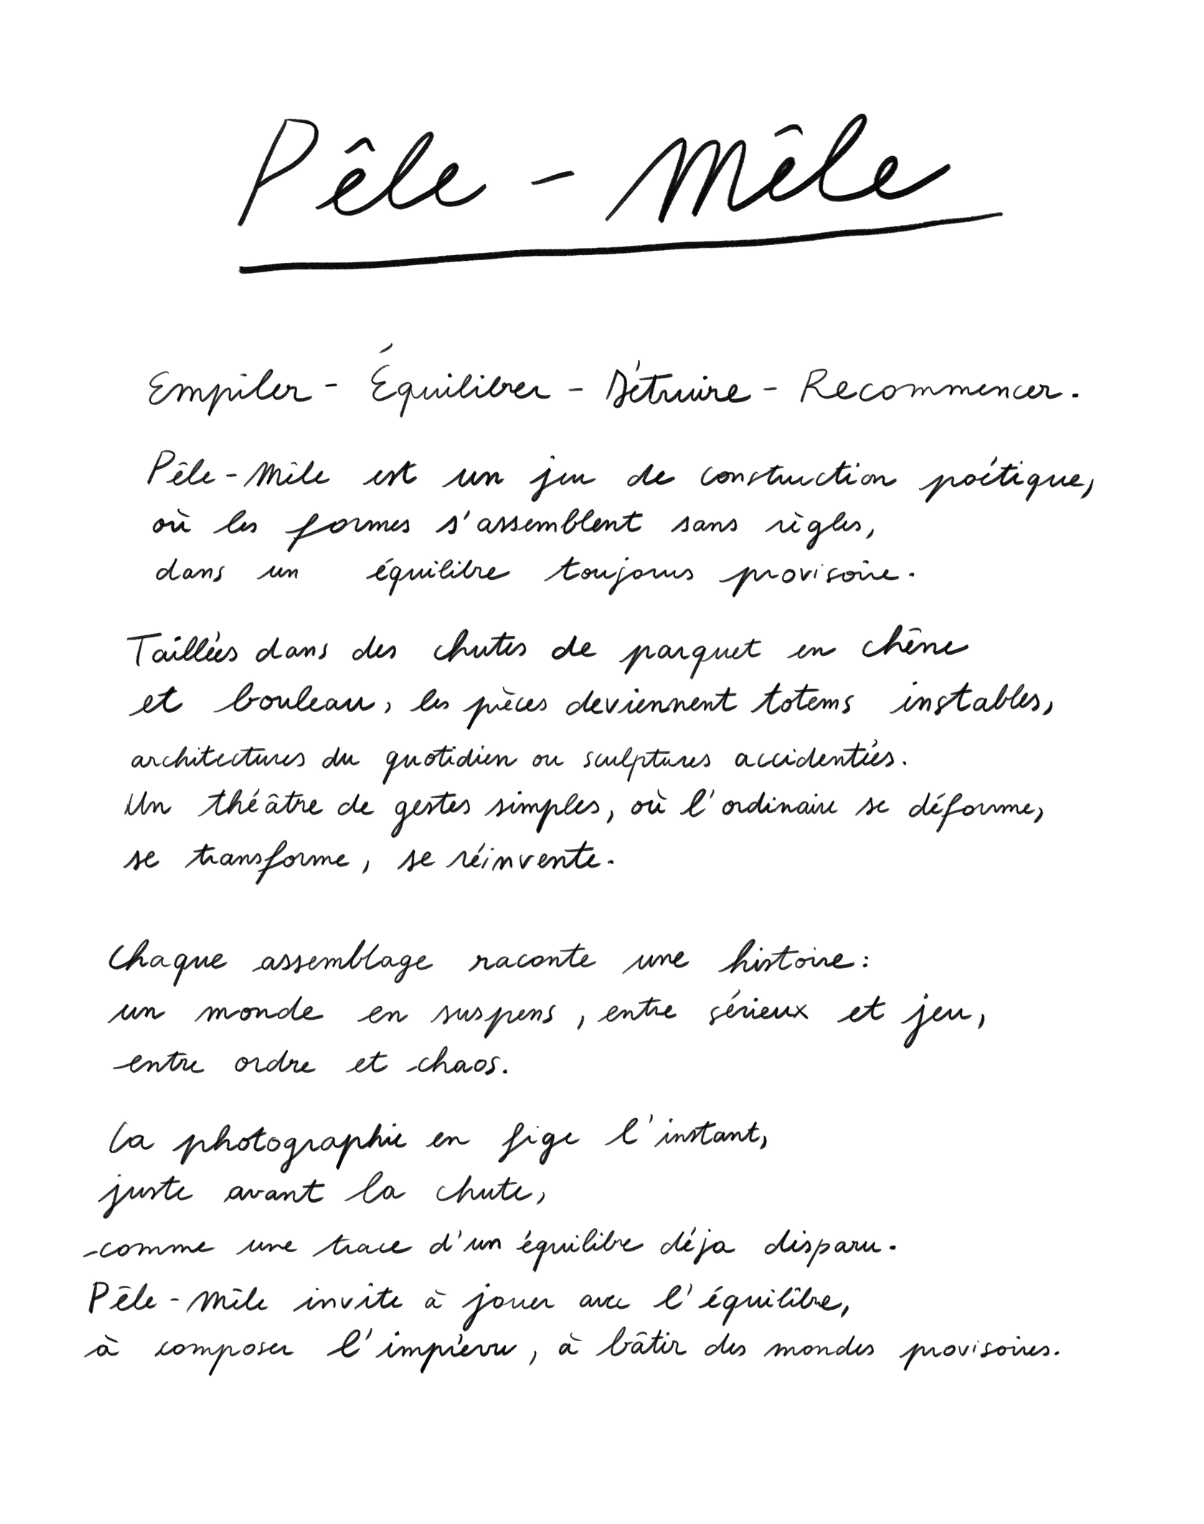 Pêle - Mêle
Empiler - Équilibrer - Détruire - Recommencer.
Pêle - Mêle est un jeu de construction poétique,
où les formes s'assemblent sans règles,
dans un équilibre toujours provisoire.
Taillées dans des chutes de parquet en chêne
et bouleau, les pièces deviennent totems instables,
architectures du quotidien ou sculptures accidentées.
Un théâtre de gestes simples, où l'ordinaire se déforme,
se transforme, se réinvente.
Chaque assemblage raconte une histoire :
un monde en suspens, entre sérieux et jeu,
entre ordre et chaos.
La photographie en fige l'instant,
juste avant la chute,
comme une trace d'un équilibre déja disparu.
Pêle - Mêle invite à jouer avec l'équilibre,
à composer l'imprévu, à bâtir des mondes provisoires.